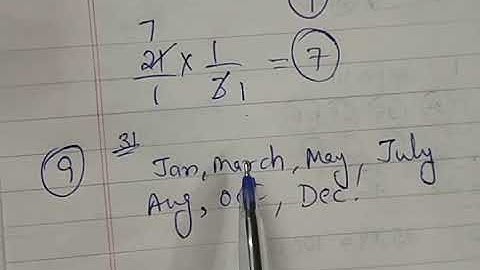 7
21/1 × 1/3 1 = 7
9 31 Jan, march, May, July
Aug, Oct, Dec.